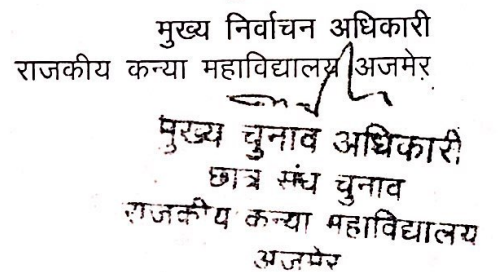 मुख्य निर्वाचन अधिकारी
राजकीय कन्या महाविद्यालय अजमेर
मुख्य चुनाव अधिकारी
छात्र संघ चुनाव
राजकीय कन्या महाविद्यालय
अजमेर